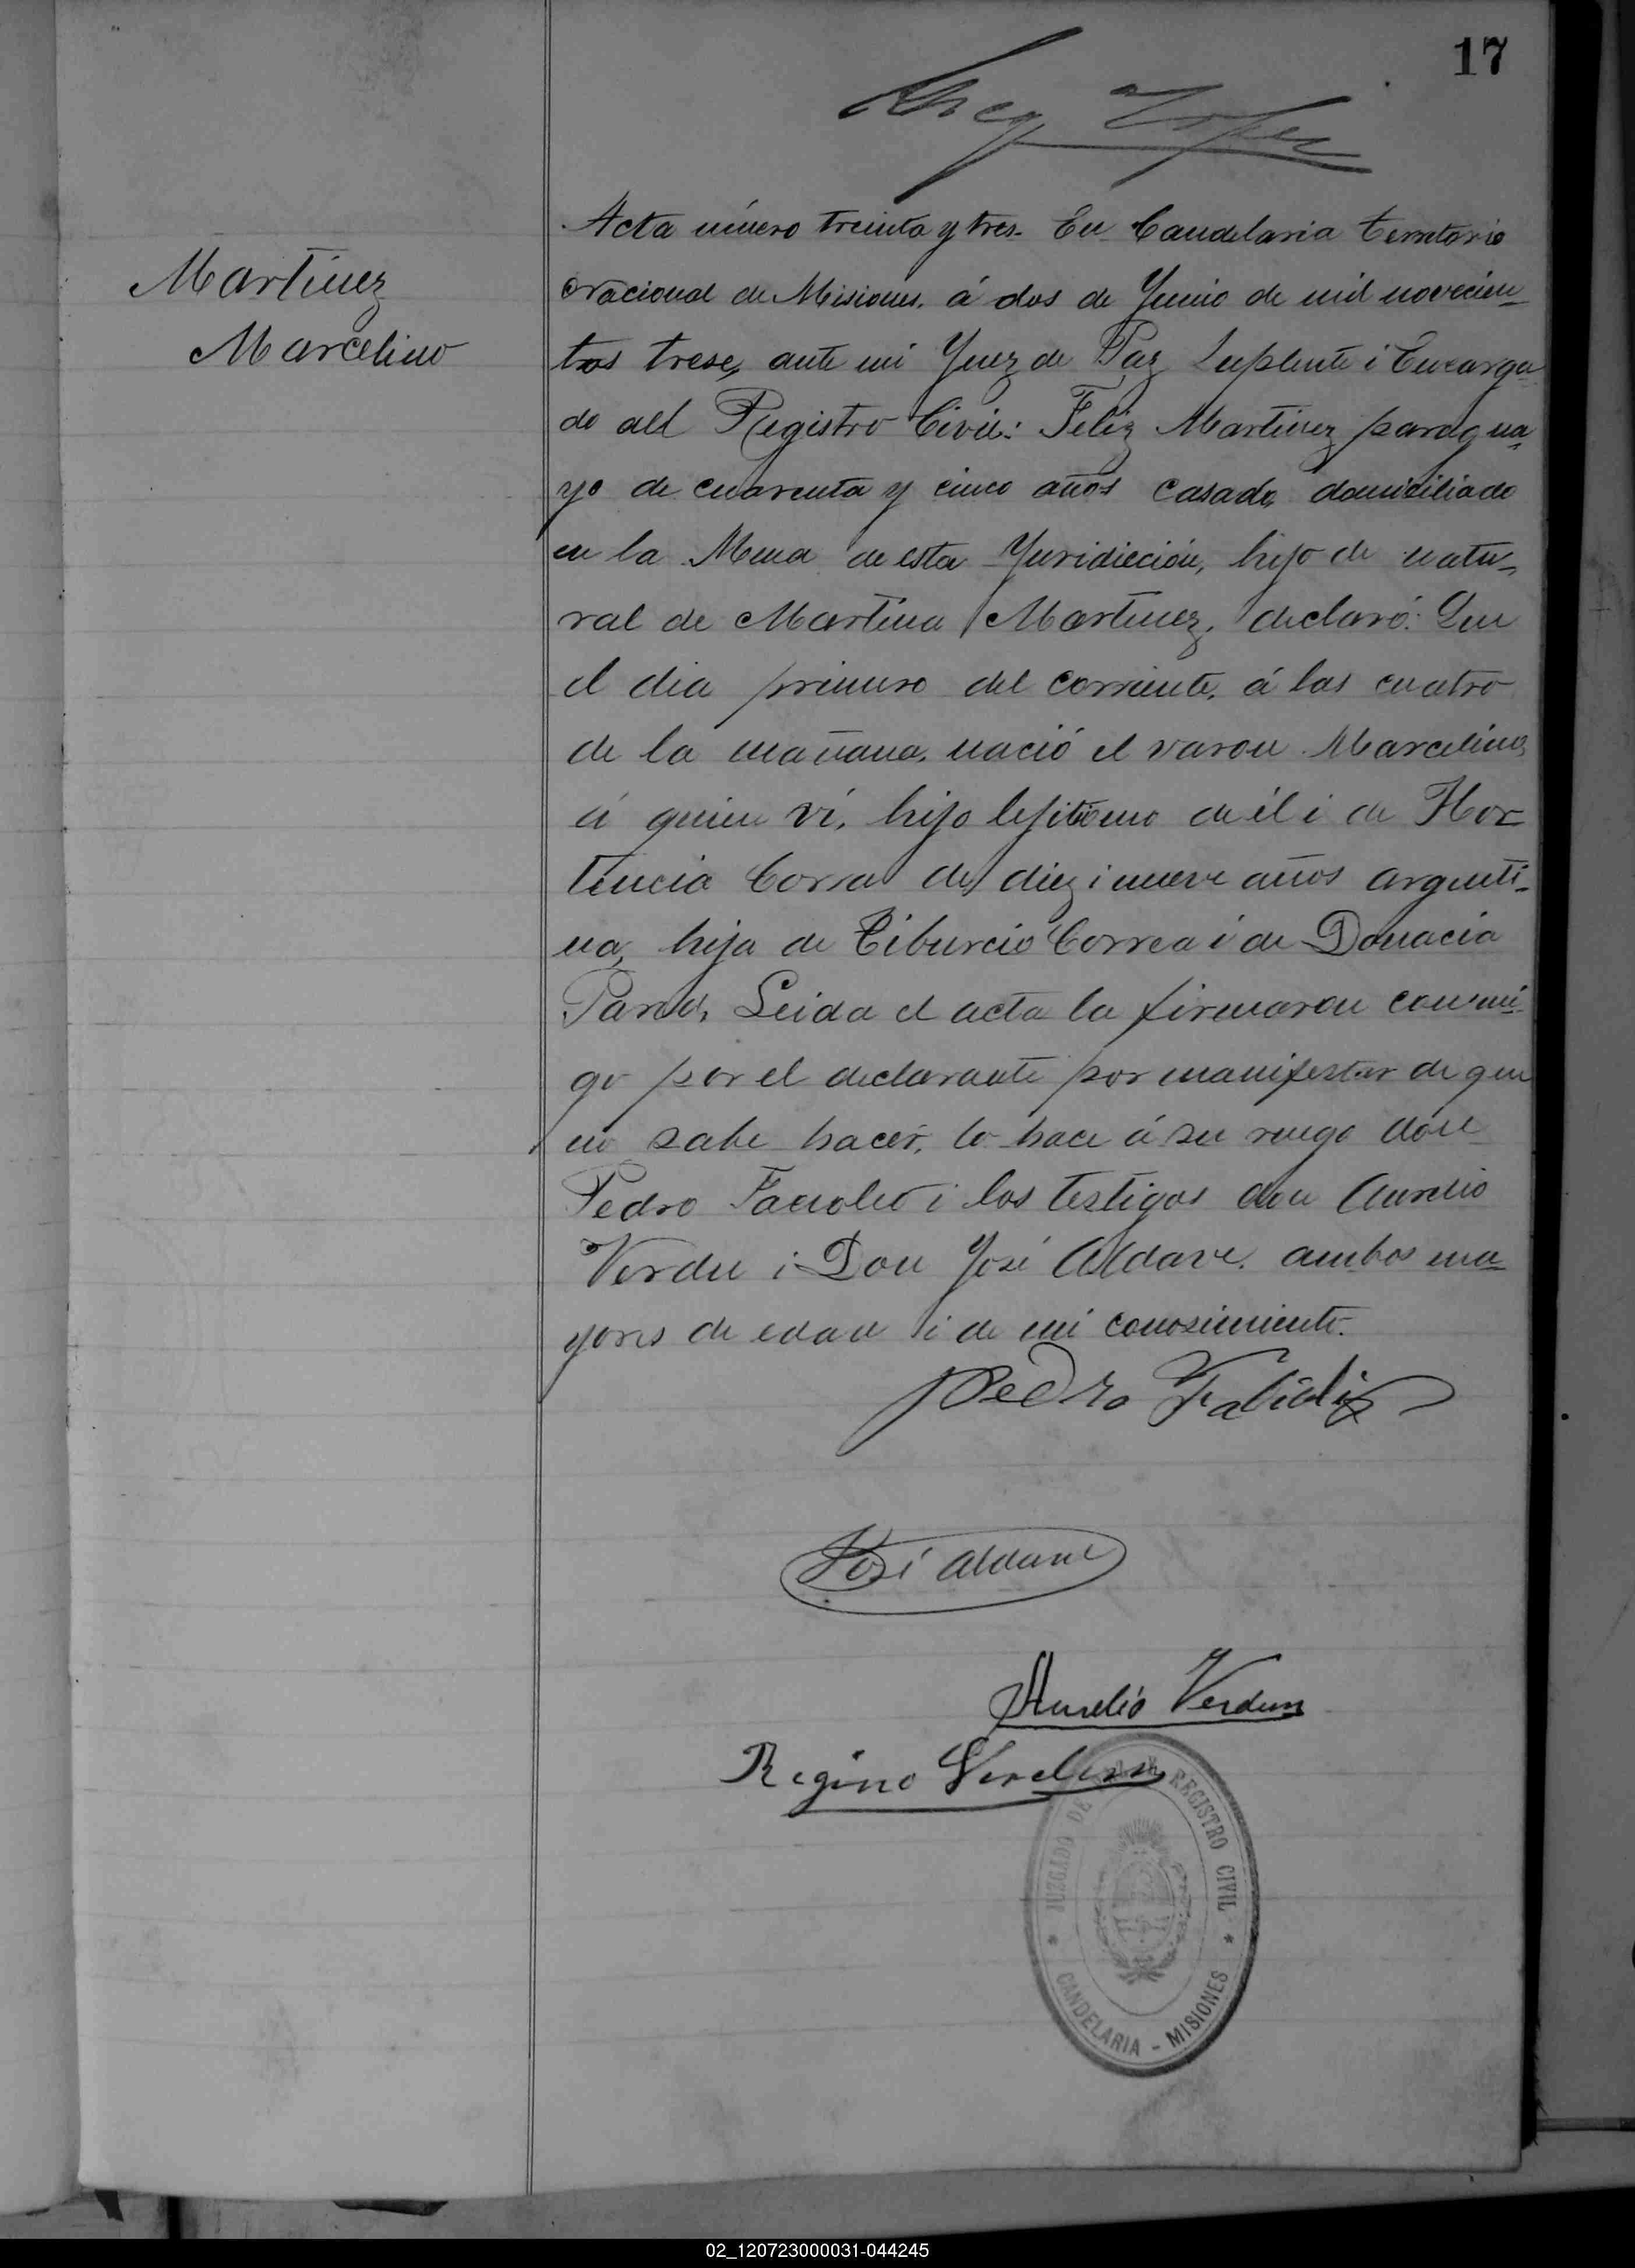 17
Martinez
Marcelino
Acta número treinta y tres. En Candelaria territorio
nacional de Misiones, á dos de Junio de mil novecien-
tos trese, ante mi Juez de Paz Suplente i Encarga-
do del Registro Civil: Feliz Martinez paragua-
yo de cuarenta y cinco años casado, domiciliado
en la Mena de esta Juridicción, hijo de natu-
ral de Martina Martinez, declaró: Que
el dia primero del corriente, á las cuatro
de la mañana, nació el varon Marcelino,
á quien ví, hijo lejitimo de él i de Hor-
tencia Correa de diez i nueve años argenti-
na, hija de Tiburcio Correa i de Donacia
Leida el acta la firmaron conmi-
go por el declarante por manifestar de que
no sabe hacer, lo hace á su ruego don
Pedro i los testigos don Aurelio
Verdu i Don José Aldave, ambos ma-
yores de edad i de mi conosimiento.
Pedro
José Aldave
Aurelio Verdun
Regino Verdun
JUZGADO DE PAZ REGISTRO CIVIL
CANDELARIA - MISIONES
02_120723000031-044245